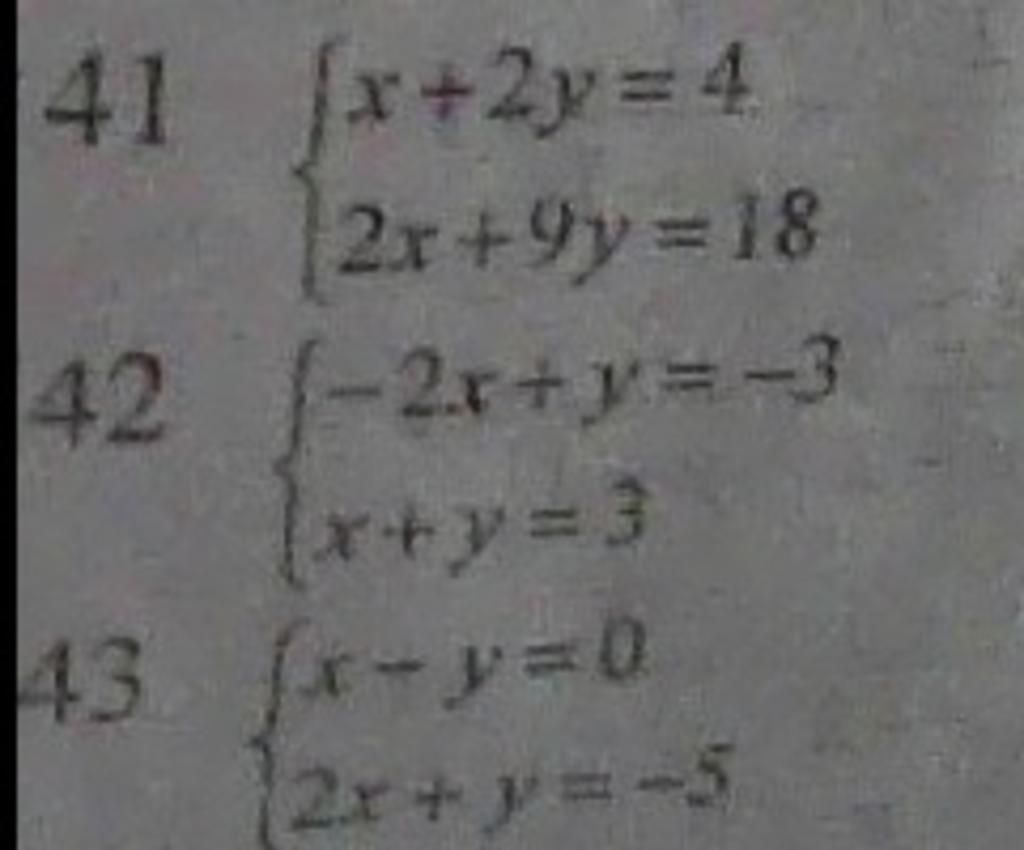 41 x + 2y = 4
2x + 9y = 18
42 -2x + y = -3
x + y = 3
43 x - y = 0
2x + y = -5